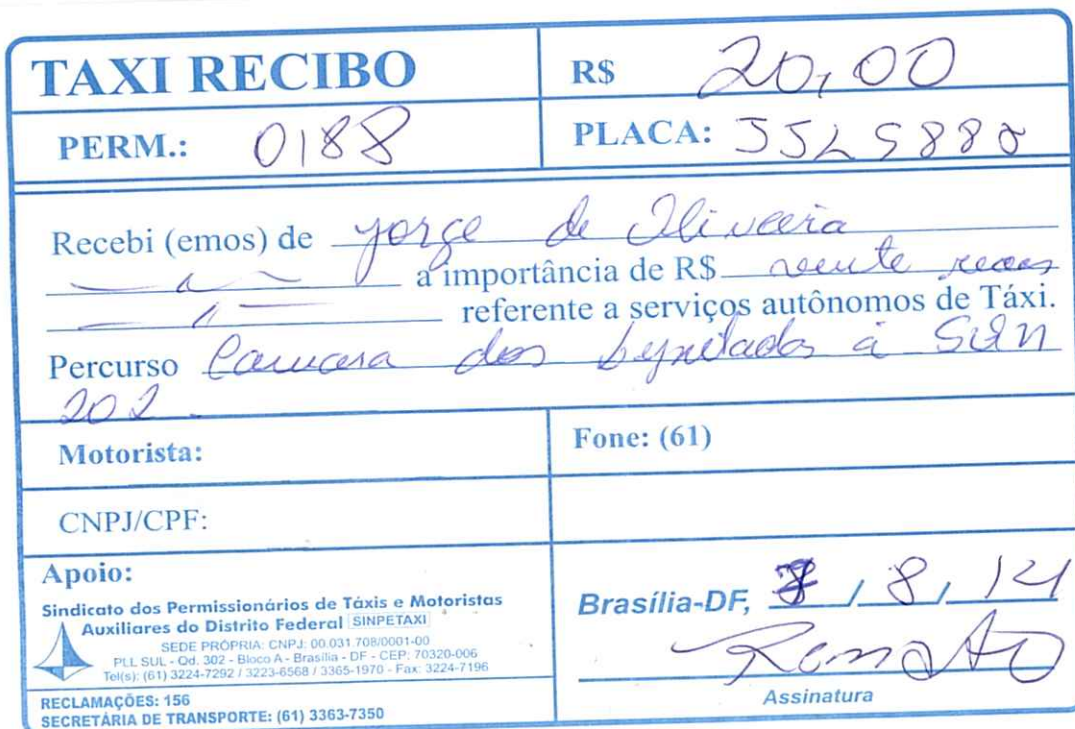 TAXI RECIBO R$ 20,00
PERM.: 0188 PLACA: JJL 5888
Recebi (emos) de Jorge de Oliveira
a importância de R$ vinte reais
referente a serviços autônomos de Táxi.
Percurso Camara dos Deputados à SQN
202.
Motorista: Fone: (61)
CNPJ/CPF:
Apoio:
Sindicato dos Permissionários de Táxis e Motoristas
Auxiliares do Distrito Federal SINPETAXI
SEDE PRÓPRIA: CNPJ: 00.031.708/0001-00
PLL SUL - Qd. 302 - Bloco A - Brasília - DF - CEP: 70320-006
Tel(s): (61) 3224-7292 / 3223-6568 / 3365-1970 - Fax: 3224-7196
RECLAMAÇÕES: 156
SECRETÁRIA DE TRANSPORTE: (61) 3363-7350
Brasília-DF, 8 / 8 / 14
Renato
Assinatura